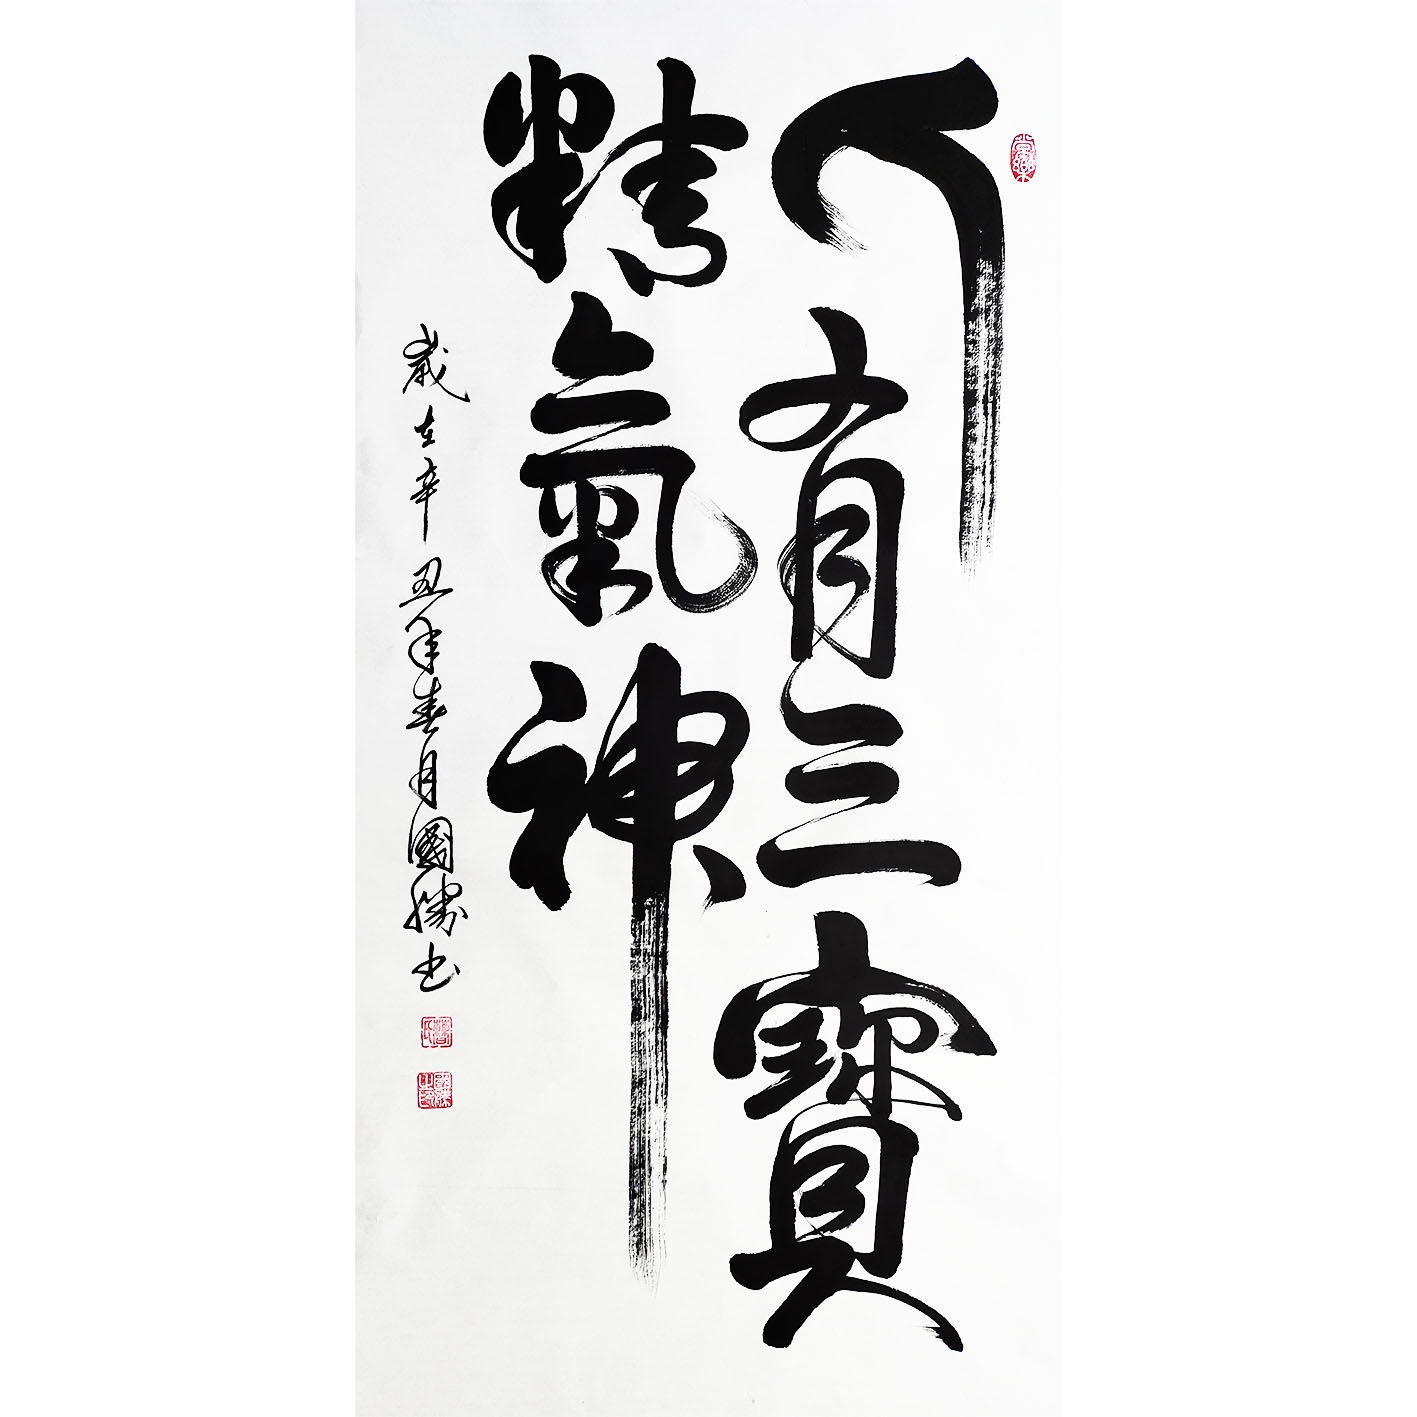 人有三寶
精氣神
歲在辛丑年春月國勝书